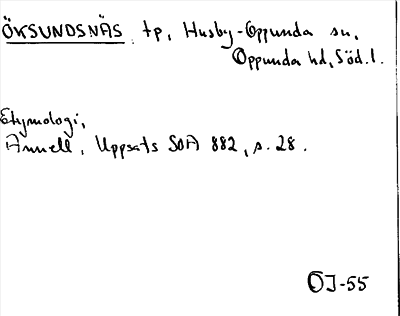 ÖKSUNDSNÄS tp, Husby-Oppunda sn,
Oppunda hd, Söd. l.
Etymologi,
Annell, Uppsats SOA 882, s. 28.
OJ-55